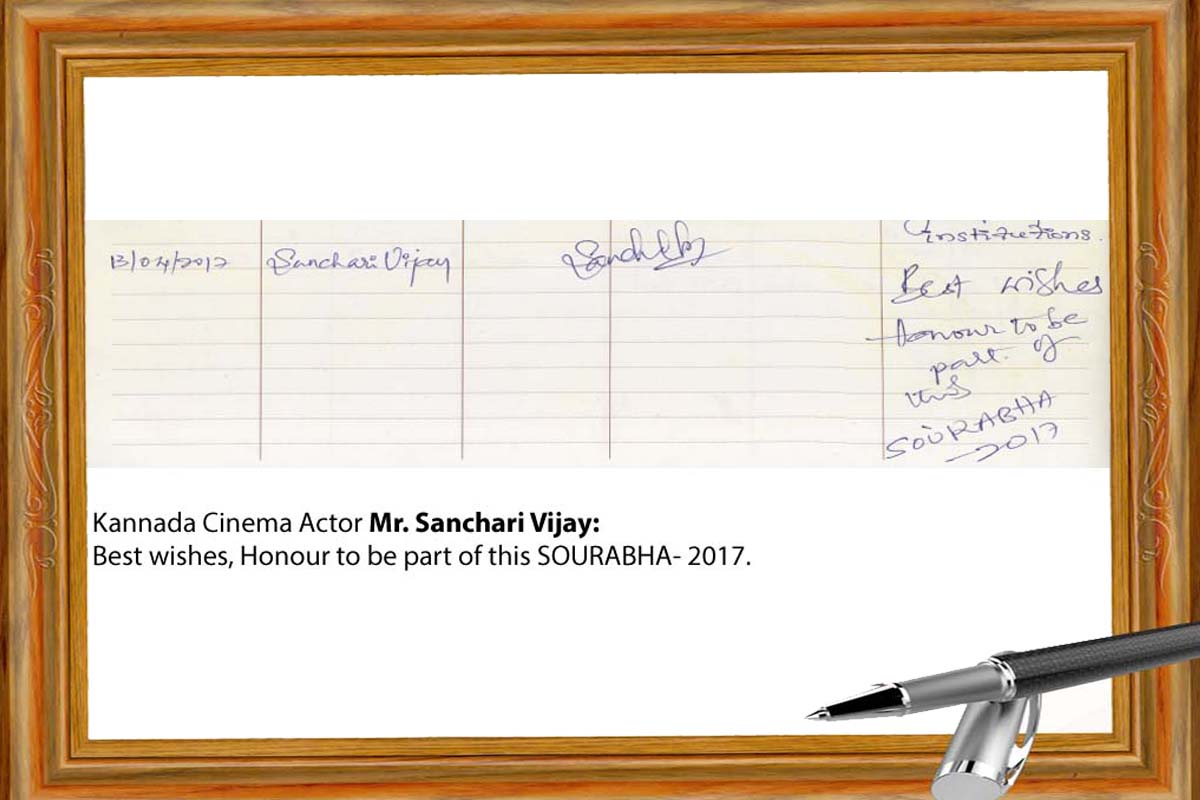 institutions.
13/04/2017 Sanchari Vijay
Best wishes
Honour to be
part of
this
SOURABHA
2017
Kannada Cinema Actor Mr. Sanchari Vijay:
Best wishes, Honour to be part of this SOURABHA- 2017.